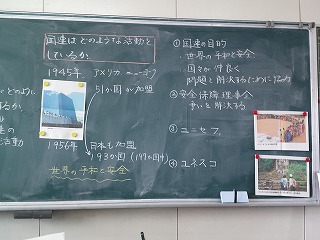 国連はどのような活動を
しているか
1945年 アメリカ ニューヨーク
51か国が加盟
1956年 日本も加盟
193か国(197か国中)
世界の平和と安全
①国連の目的
・世界の平和と安全
・国々が仲良く
・問題を解決するために協力
②安全保障理事会
争いを解決する
③ユニセフ
④ユネスコ